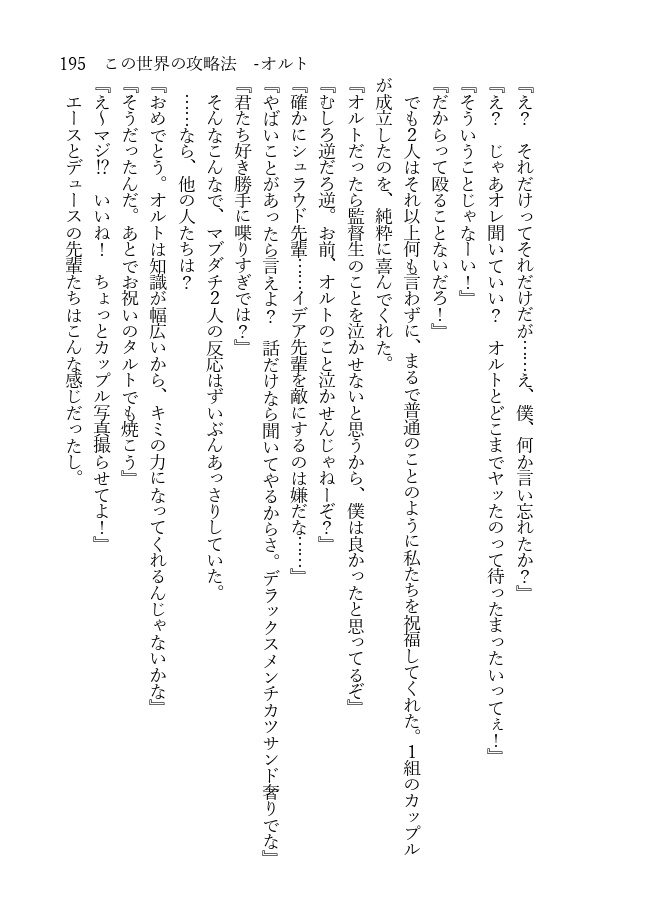 195　この世界の攻略法　-オルト
『え？　それだけってそれだけだが……え、僕、何か言い忘れたか？』
『え？　じゃあオレ聞いていい？　オルトとどこまでヤッたのって待ったまったいってぇ！』
『そういうことじゃなーい！』
『だからって殴ることないだろ！』
　でも２人はそれ以上何も言わずに、まるで普通のことのように私たちを祝福してくれた。１組のカップル
が成立したのを、純粋に喜んでくれた。
『オルトだったら監督生のことを泣かせないと思うから、僕は良かったと思ってるぞ』
『むしろ逆だろ逆。お前、オルトのこと泣かせんじゃねーぞ？』
『確かにシュラウド先輩……イデア先輩を敵にするのは嫌だな……』
『やばいことがあったら言えよ？　話だけなら聞いてやるからさ。デラックスメンチカツサンド奢りでな』
『君たち好き勝手に喋りすぎでは？』
　そんなこんなで、マブダチ２人の反応はずいぶんあっさりしていた。
　……なら、他の人たちは？
『おめでとう。オルトは知識が幅広いから、キミの力になってくれるんじゃないかな』
『そうだったんだ。あとでお祝いのタルトでも焼こう』
『え〜マジ!?　いいね！　ちょっとカップル写真撮らせてよ！』
　エースとデュースの先輩たちはこんな感じだったし。